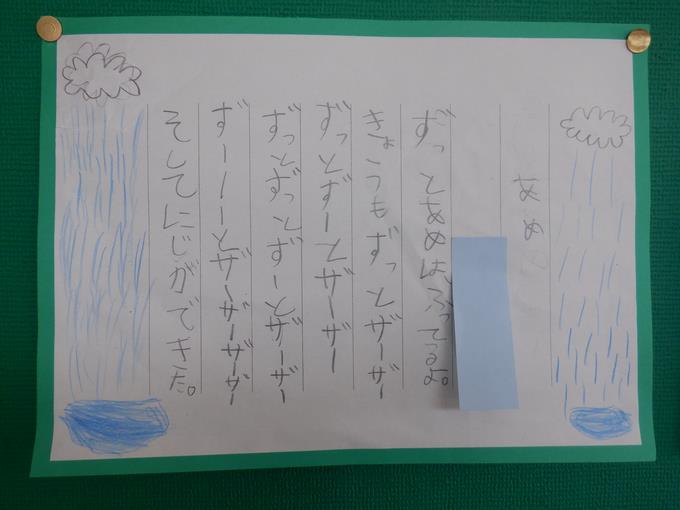 あめ
ずっとあめはふってるよ。
きょうもずっとザーザー
ずっとずーとザーザー
ずっとずっとずーとザーザー
ずーーーとザーザーザーザー
そしてにじができた。